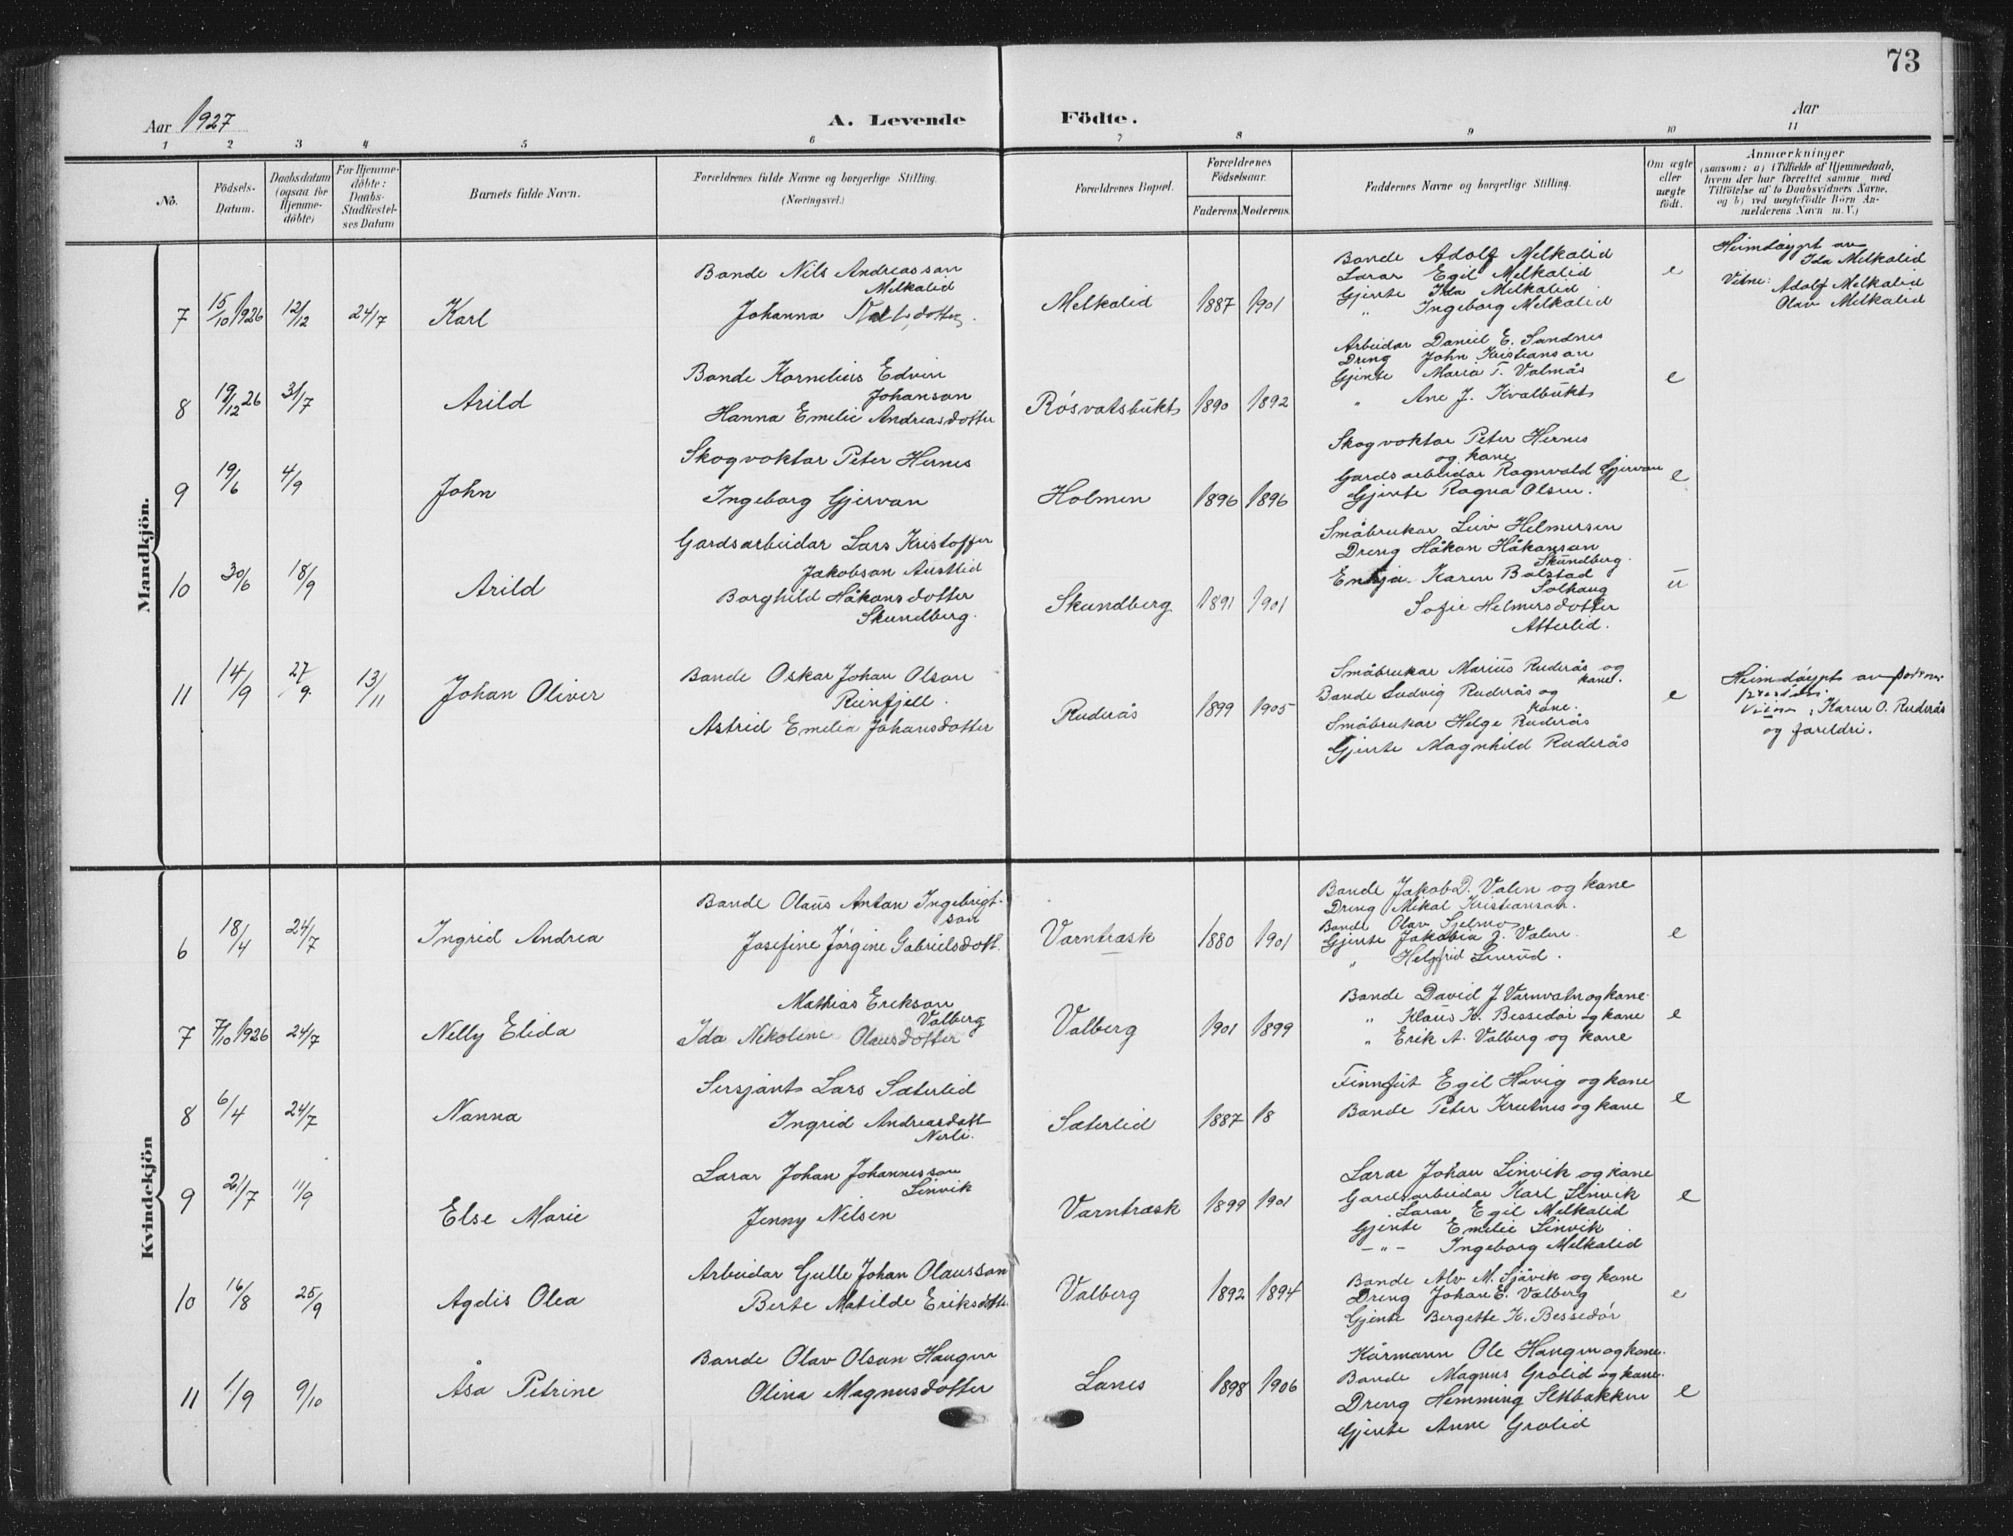 73
Aar 1927
A. Levende Födte.
Aar
1 2 3 4 5 6 7 8 9 10 11
No.
Födsels-Datum.
Daabsdatum (ogsaa for Hjemme-döbte)
For Hjemme-döbte: Daabs-Stadfæstel-ses Datum
Barnets fulde Navn.
Forældrenes fulde Navne og borgerlige Stilling. (Næringsvei.)
Forældrenes Bopæl.
Forældrenes Födselsaar.
Faderens. Moderens.
Faddernes Navne og borgerlige Stilling.
Om ægte eller uægte födt.
Anmærkninger
(saasom: a) i Tilfælde af Hjemmedaab,
hvem der har forrettet samme med
Tilföielse af to Daabsvidners Navne,
og b) ved uægtefödte Börn An-
melderens Navn m. V.)
Mandkjön.
7 15/10 1926 12/12 24/7 Karl
Bonde Nils Andreasson
Melkalid
Johanna
Melkalid 1887 1901
Bonde Adolf Melkalid
Lærar Egil Melkalid
Gjente Ida Melkalid
" Ingeborg Melkalid
e
Heimdøypt av
Ida Melkalid
Vitne: Adolf Melkalid
Olav Melkalid
8 19/12 26 31/7 Arild
Bonde Kornelius Edvin
Johanson
Hanna Emelie Andreasdotter
Røsvatsbukt 1890 1892
Arbeidar Daniel E. Sandnes
Dreng John Kristianson
Gjente Maria T. Valmås
" Ane J. Kvalbukt
e
9 19/6 4/9 John
Skogvoktar Peter Hernes
Ingeborg Gjervan
Holmen 1896 1896
Skogvoktar Peter Hernes
og kone
Gardsarbeidar Ragnvald Gjervan
Gjente Ragna Olsen.
e
10 30/6 18/9 Arild
Gardsarbeidar Lars Kristoffer
Jakobson Austlid
Borghild Håkonsdotter
Skundberg.
Skundberg 1891 1901
Småbrukar Leiv Helmersen
Dreng Håkon Håkonson
Skundberg.
Enkja Karen Bolstad
Solhaug
Sofie Helmersdotter
Atterlid.
u
11 14/9 27/9 13/11 Johan Oliver
Bonde Oskar Johan Olson
Reinfjell.
Astrid Emelia Johansdotter
Ruderås 1899 1905
Småbrukar Marius Ruderås og
kone.
Bonde Ludvig Ruderås og
kone.
Småbrukar Helge Ruderås
Gjente Magnhild Ruderås
e
Heimdøypt av
Karen O. Ruderås
og foreldri.
Kvindekjön
6 18/4 24/7 Ingrid Andrea
Bonde Olaus Anton Ingebrigt-
son
Josefine Jørgine Gabrielsdott.
Varntræsk 1880 1901
Bonde Jakob D. Valen og kone
Dreng Mikal Kristianson.
Bonde Olav Sjelmo
Gjente Jakobia J. Valen.
" Helgfrid Linrud.
e
7 7/10 1926 24/7 Nelly Elida
Mathias Erikson
Valberg
Ida Nikoline Olausdotter
Valberg 1901 1899
Bonde David J. Varnvatn og kone
" Klaus K. Bessedør og kone
" Erik A. Valberg og kone
e
8 6/4 24/7 Nanna
Sersjant Lars Sæterlid
Ingrid Andreasdott
Nerli.
Sæterlid 1887 18
Finnfut Egil Havig og kone
Bonde Peter Krutnes og kone
e
9 21/7 11/9 Else Marie
Lærar Johan Johannesson
Linvik
Jenny Nilsen
Varntræsk 1899 1901
Lærar Johan Linvik og kone
Gardsarbeidar Karl Linvik
Lærar Egil Melkalid
Gjente Emelie Linvik
- " - Ingeborg Melkalid
e
10 16/8 25/9 Agdis Olea
Arbeidar Gulle Johan Olausson
Berte Matilde Eriksdotter
Valberg 1892 1894
Bonde Alv M. Sjåvik og kone
Dreng Johan E. Valberg
Gjente Bergette K. Bessedør
e
11 1/9 9/10 Åsa Petrine
Bonde Olav Olson Haugen
Olina Magnusdotter
Lanes 1898 1906
Kårmann Ole Haugen og kone.
Bonde Magnus Grølid og kone.
Dreng Hemming Stubakken
Gjente Anne Grølid
e